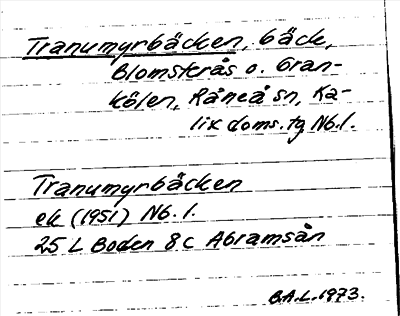 Tranumyrbäcken, bäck,
Blomsterås o. Gran-
kölen, Råneå sn, Ka-
lix doms.tg Nb.l.
Tranumyrbäcken
ek (1951) Nb. l.
25 L Boden 8c Abramsån
B.A.L. 1973.